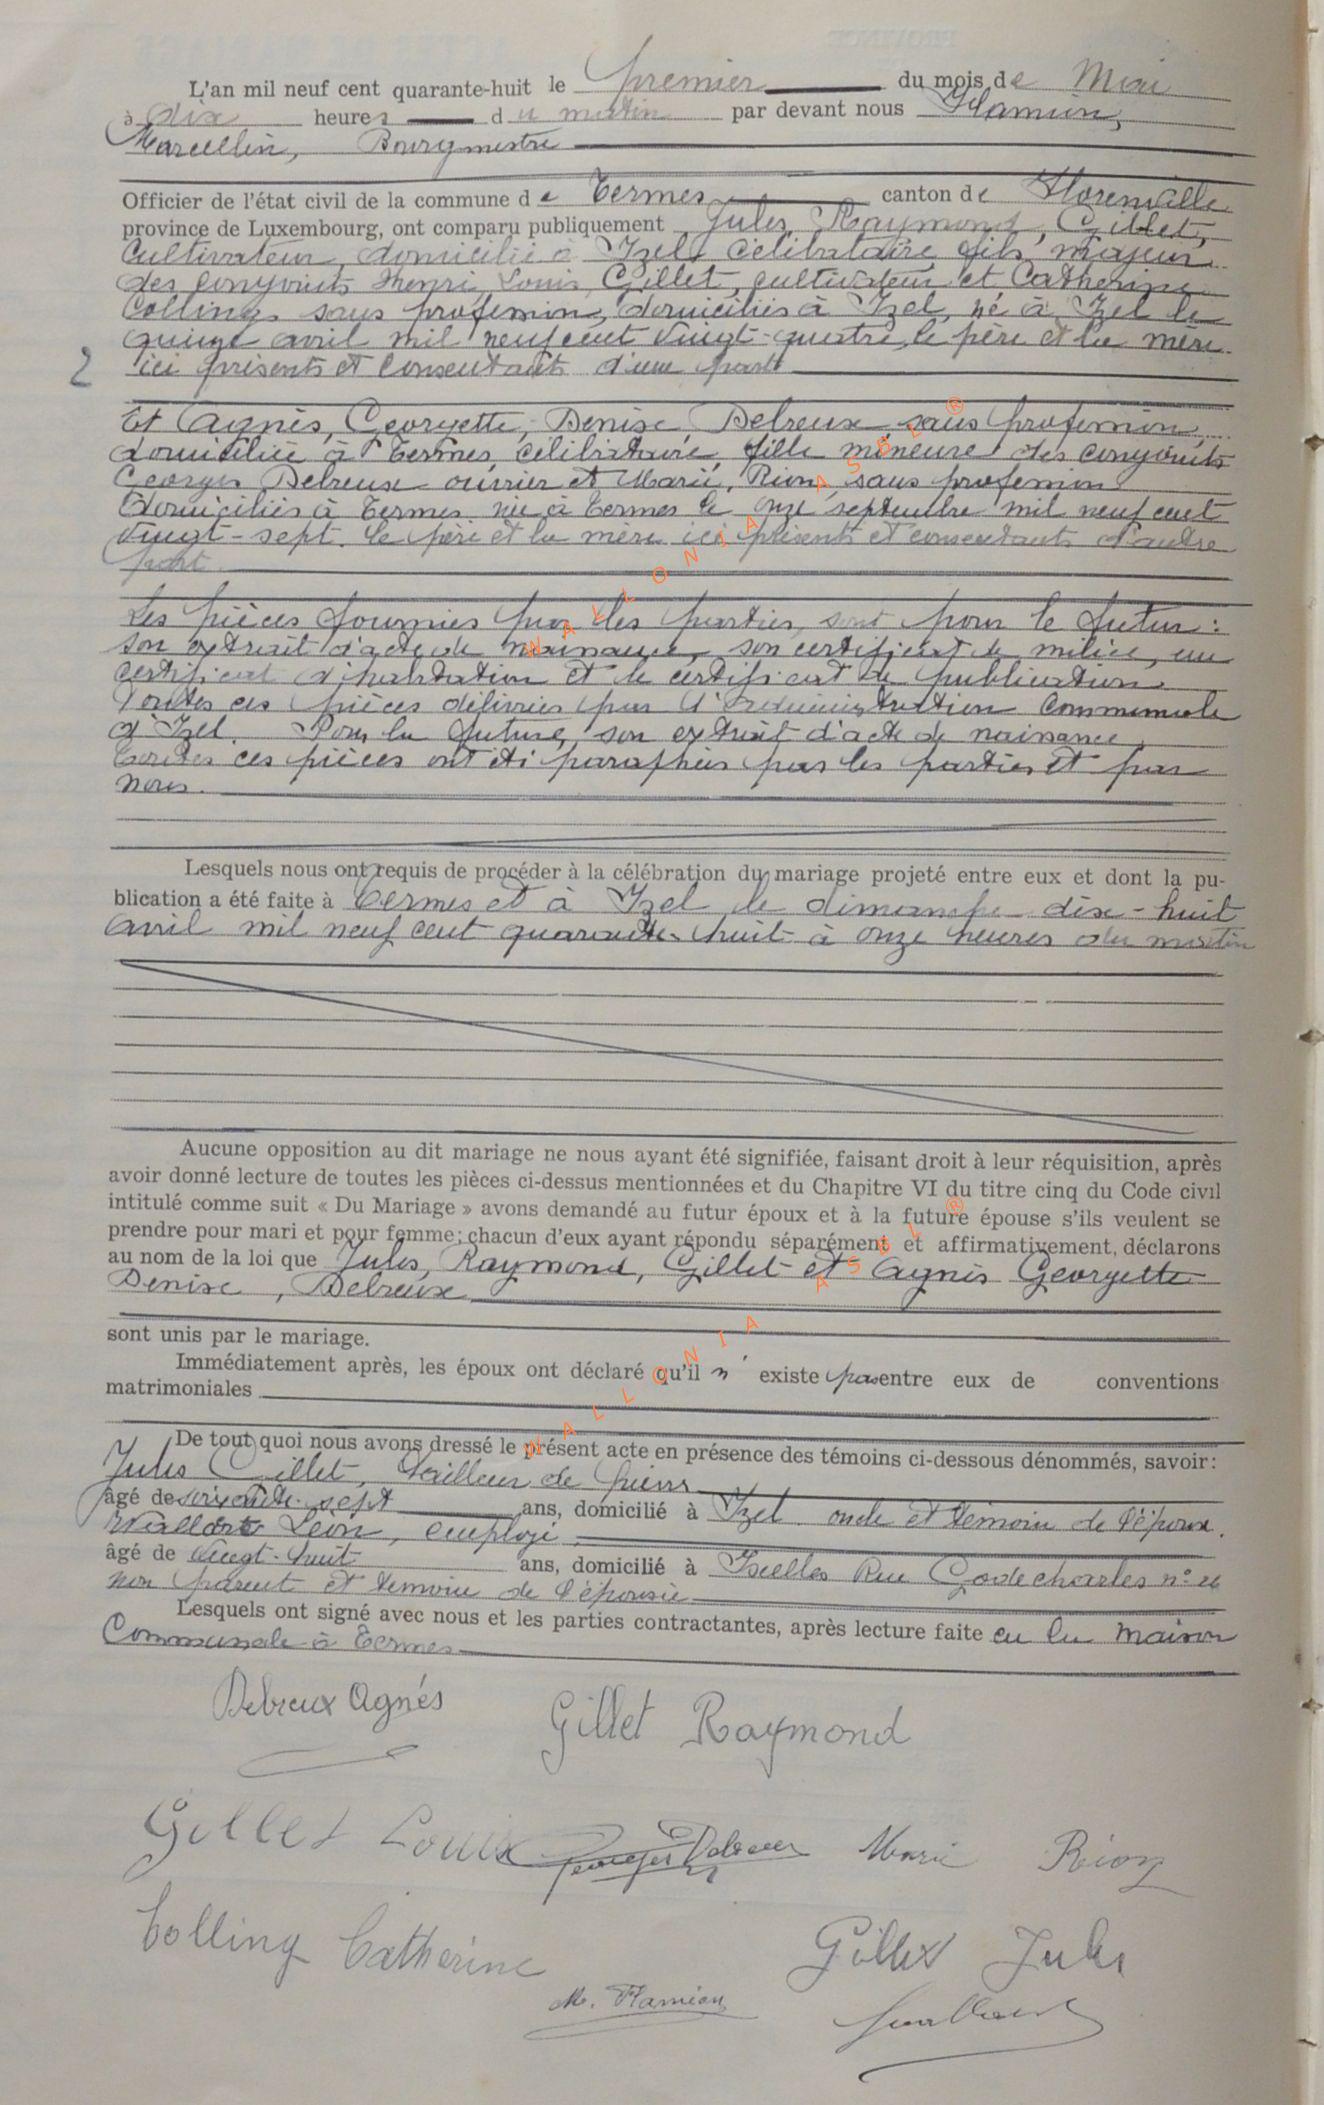 L'an mil neuf cent quarante-huit le premier du mois de Mai
à dix heures du matin par devant nous Flamion,
Marcellin, Bourgmestre
Officier de l'état civil de la commune de Termes canton de Florenville
province de Luxembourg, ont comparu publiquement Jules, Raymond, Gillet,
Cultivateur, domicilié à Izel célibataire, fils majeur
des conjoints Henri, Louis, Gillet, cultivateur et Catherine
Colling, sans profession, domiciliés à Izel, né à Izel le
quinze avril mil neuf cent vingt-quatre, le père et la mère
2 ici présents et consentants d'une part
Et Agnès, Georgette, Denise, Debreux sans profession,
domiciliée à Termes, célibataire, fille mineure des conjoints
Georges Debreux ouvrier et Marie, Rion, sans profession
domiciliés à Termes, née à Termes le onze septembre mil neuf cent
vingt-sept. le père et la mère ici présents et consentants d'autre
part.
Les pièces fournies par les parties, sont pour le futur :
son extrait d'acte de naissance, son certificat de milice, un
certificat d'habitation et le certificat de publication
Toutes ces pièces délivrées par l'administration communale
d'Izel. Pour la future, son extrait d'acte de naissance
Toutes ces pièces ont été paraphées par les parties et par
nous.
Lesquels nous ont requis de procéder à la célébration du mariage projeté entre eux et dont la pu-
blication a été faite à Termes et à Izel le dimanche dix-huit
avril mil neuf cent quarante-huit à onze heures du matin
Aucune opposition au dit mariage ne nous ayant été signifiée, faisant droit à leur réquisition, après
avoir donné lecture de toutes les pièces ci-dessus mentionnées et du Chapitre VI du titre cinq du Code civil
intitulé comme suit « Du Mariage » avons demandé au futur époux et à la future épouse s'ils veulent se
prendre pour mari et pour femme; chacun d'eux ayant répondu séparément et affirmativement, déclarons
au nom de la loi que Jules, Raymond, Gillet et Agnès Georgette
Denise, Debreux
sont unis par le mariage.
Immédiatement après, les époux ont déclaré qu'il n'existe pas entre eux de conventions
matrimoniales
De tout quoi nous avons dressé le présent acte en présence des témoins ci-dessous dénommés, savoir :
Jules Gillet, tailleur de pierres
âgé de soixante-sept ans, domicilié à Izel oncle et témoin de l'époux.
Léon, employé,
âgé de vingt-huit ans, domicilié à Ixelles Rue Godecharles n°
non parent et témoin de l'épouse
Lesquels ont signé avec nous et les parties contractantes, après lecture faite en la maison
Communale à Termes
Debreux Agnés
Gillet Raymond
Gillet Louis
Georges Debreux
Marie Rion
Colling Catherine
Gillet Jules
M. Flamion
WALLONIA ASBL ®
WALLONIA ASBL ®